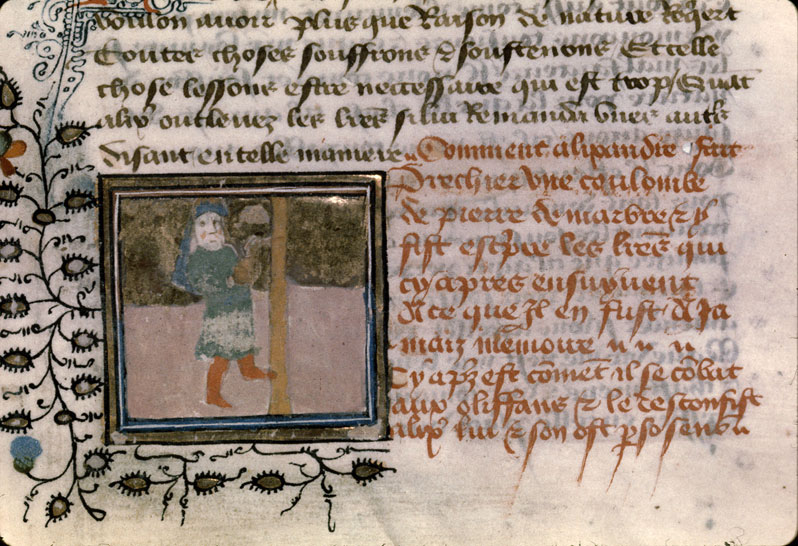 voulon avoir plus que Raison de nature Reqiert
Toutes choses souffrons & soustenons Et telle
chose lessons estre necessaire qui est trop / Quāt
alix̄ out leuez les lrēs si lui Remanda vnes autrs
disant en telle maniere Comment alixandre fait
Drechier vne coulombe
de pierre de marbre & y
fist escpr̄e les lrēs qui
cy apres ensuyuent
A ce que Jl en fust A Ja
maiz memoire
Cy apz̄ est cōmēt il se cōbat
aux oliffans & le desconfist
alix̄ lui & son ost